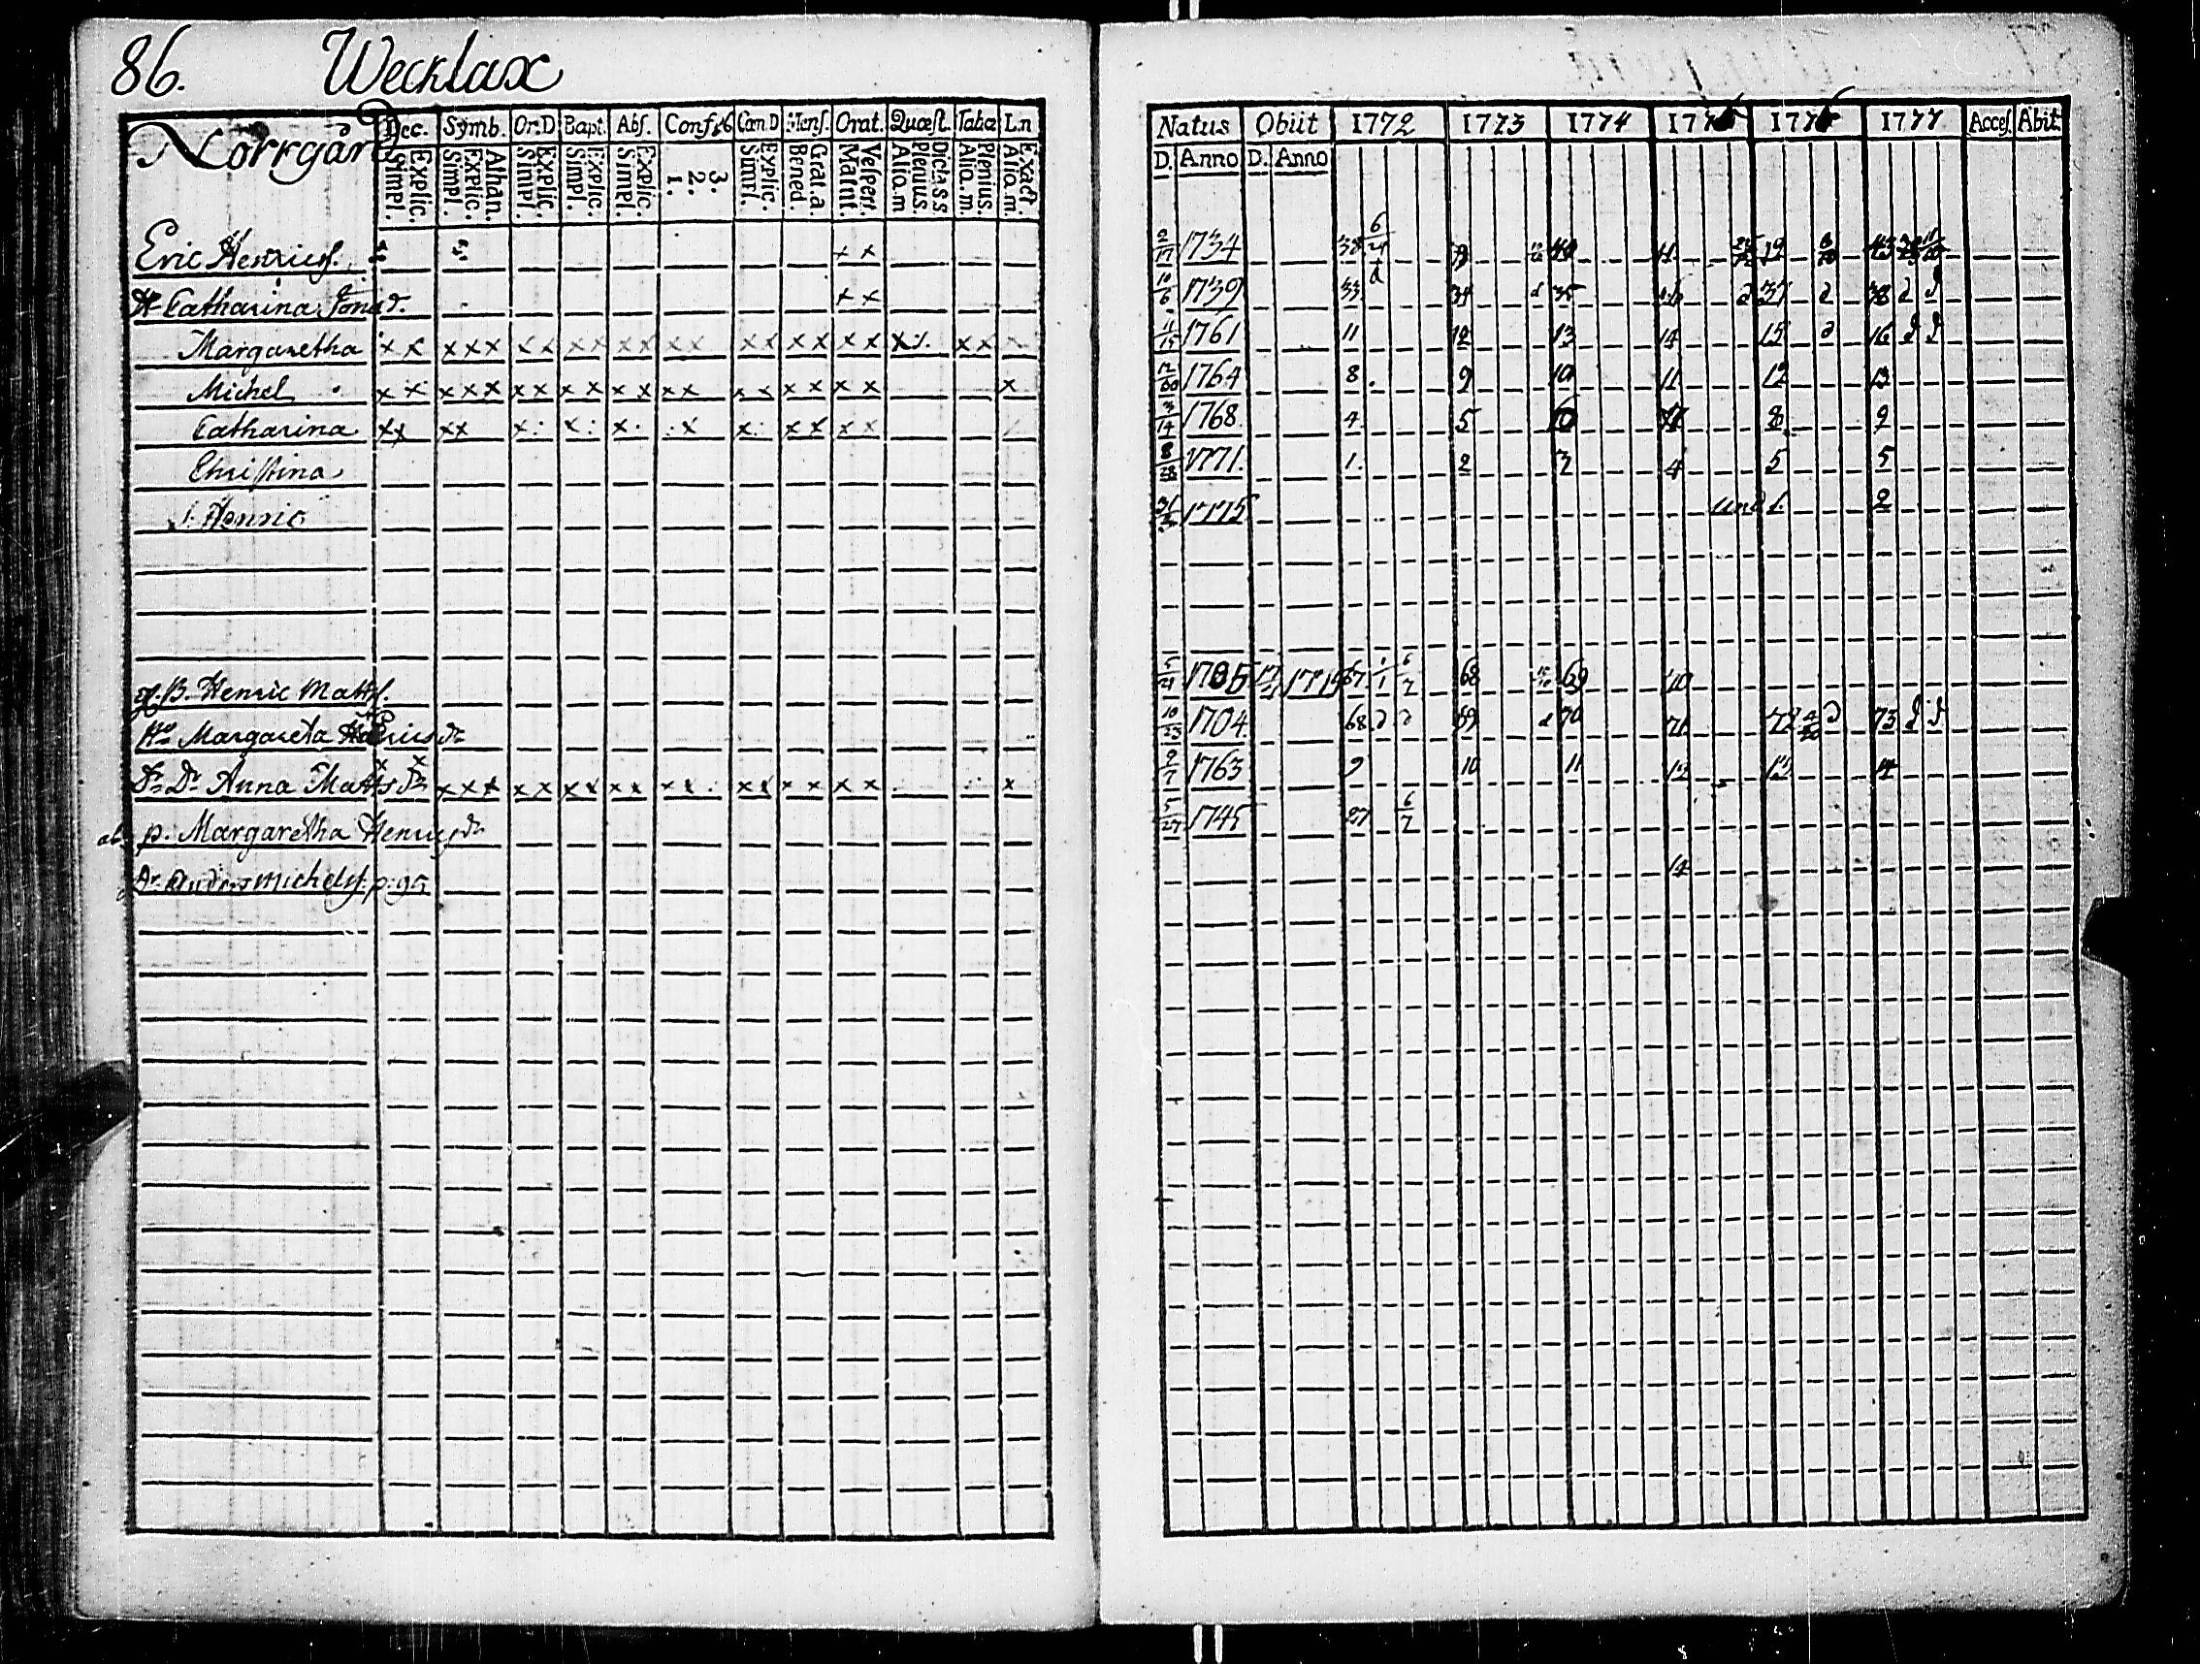 86. Wecklax
Norrgård
Dec. Symb. Or.D Bapt. Abs. Confss Cæn D Mens. Orat. Quæst. Tabiæ L.n
Explic. Simpl. Athan. Explic. Simpl. Explic. Simpl. Explic. Simpl. Explic. Simpl. 3. 2. 1. Explic. Simpl. Grat.a. Bened. Vespert. Matut. Dicta s.s. Plenius. Aliq.m Plenius. Aliq.m. Exact Aliq.m.
Natus Obiit 1772 1773 1774 1775 1776 1777 Acces. Abit
D. Anno D. Anno
Eric Henricss. x x 2/17 1734 38 6/21 39 40 41 42 43
H. Catharina Jonsd. x x 10/6 1739 33 d 34 d 35 36 d 37 d 38 d d
Margaretha x x x x x x x x x x x x x x x x x x x x x x 11/15 1761 11 12 13 14 15 d 16 d d
Michel x x x x x x x x x x x x x x x x x x x x 12/30 1764 8 9 10 11 12 13
Catharina x x x x x x x x x x x x x 3/14 1768 4 5 6 7 8 9
Christina 8/28 1771. 1. 2 3 4 5 5
Henric 1775 und 1. 2
gl. B. Henric Matss. 5/21 1705 67 1/1 6/7 68 69 70
Hu Margareta Ericsdr 10/23 1704 68 d d 69 d 70 71 72 d 73 d d
Dr. Dr Anna Matsdr x x x x x x x x x x x x x x x x x x x x 2/7 1763 9 10 11 12 13 14
ab. p. Margaretha Henricsdr 5/27 1745 27 6/7
Dr. Anders Michelss. p. 95 14